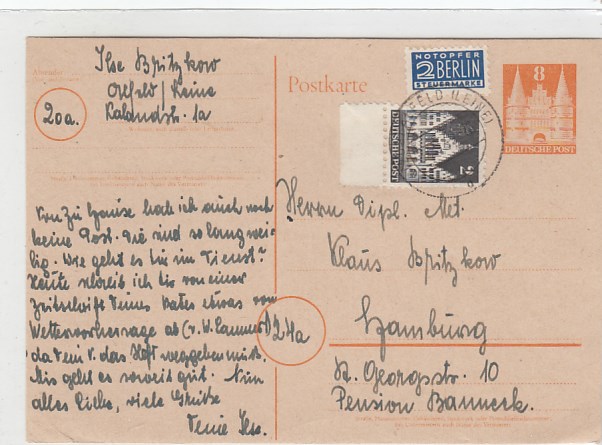 Ilse Bpitzkow
Alfeld / Leine
Kalandstr. 1a
20a.
Postkarte
NOTOPFER
2 BERLIN
STEUERMARKE
8
DEUTSCHE POST
DEUTSCHE POST
2
FELD (LEINE)
Von Zu Hause hab ich auch noch
keine Post. Die sind so langwei-
lig. Wie geht es Dir im Dienst?
Heute schreib ich Dir von einer
Zeitschrift Deines Vaters etwas von
Wettervorhersage ab (v. W. Lammert)
da Dein V. das Heft weggeben muß.
Mir geht es soweit gut. Nun
alles Liebe, viele Grüße
Deine Ilse.
24a
Herrn Dipl. Met.
Klaus Bpitzkow
Hamburg
St. Georgstr. 10
Pension Banneck.